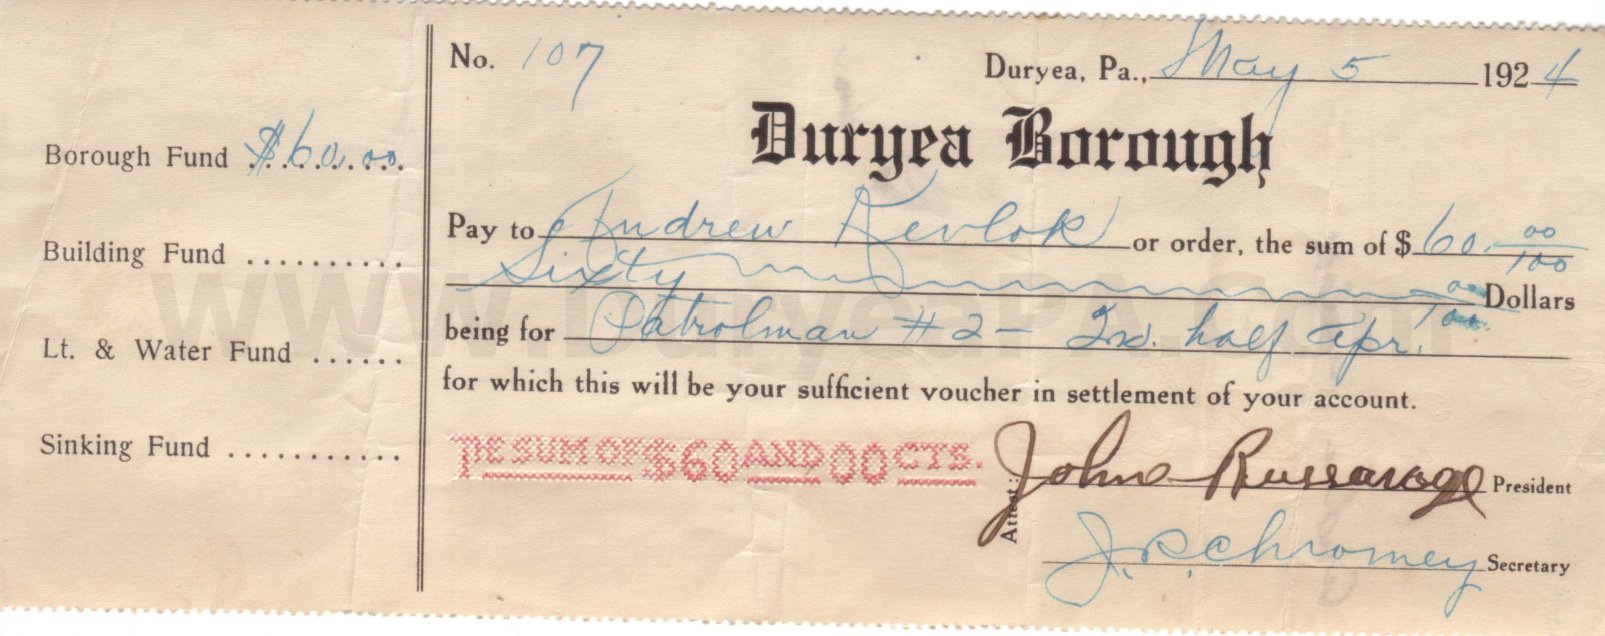 No. 107
Duryea, Pa., May 5 1924
Duryea Borough
Borough Fund $60.00
Building Fund ..........
Lt. & Water Fund ......
Sinking Fund ...........
Pay to Andrew Kevlok or order, the sum of $ 60. 00/100
Sixty 00/100 Dollars
being for Patrolman #2 - 2nd. half Apr.
for which this will be your sufficient voucher in settlement of your account.
THE SUM OF $60 AND 00 CTS.
Attest:
John Russavage President
J. P. Chromey Secretary
www.DuryeaPA.com